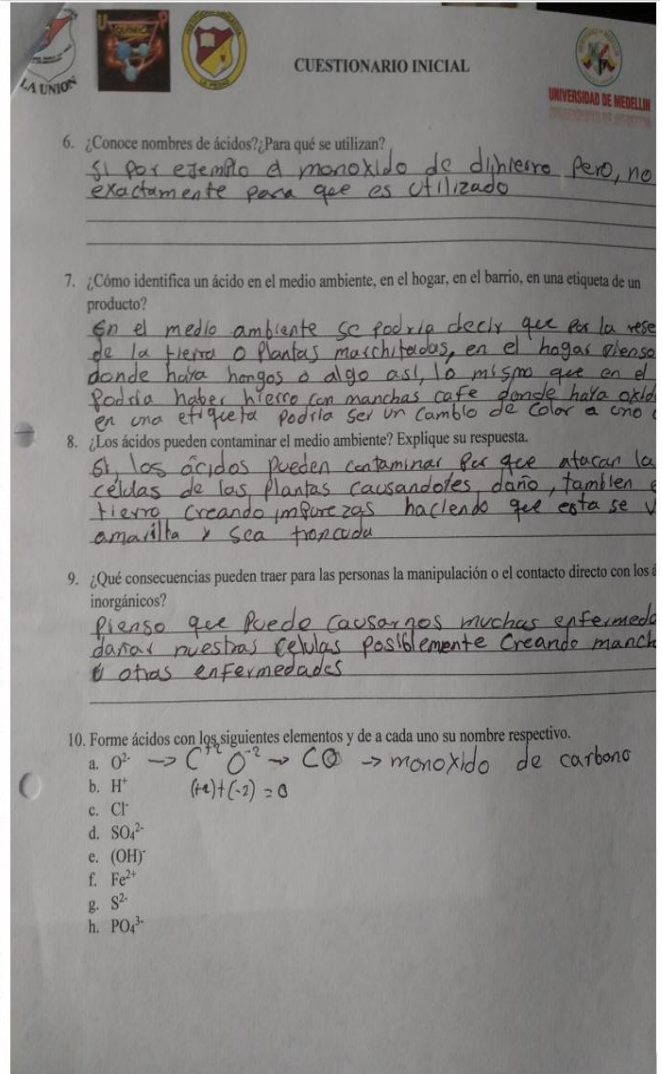 LA UNION
U QUIMICA P
CUESTIONARIO INICIAL
UNIVERSIDAD DE MEDELLIN
6. ¿Conoce nombres de ácidos?¿Para qué se utilizan?
Si por ejemplo el monoxido de dihierro pero, no
exactamente para que es utilizado
7. ¿Cómo identifica un ácido en el medio ambiente, en el hogar, en el barrio, en una etiqueta de un
producto?
en el medio ambiente se podria decir que por la rese
de la tierra o plantas marchitadas, en el hogar pienso
donde haya hongos o algo así, lo mismo que en el
Podría haber hierro con manchas cafe donde haya oxid
en una etiqueta podria ser un cambio de color a uno
8. ¿Los ácidos pueden contaminar el medio ambiente? Explique su respuesta.
Si, los ácidos pueden contaminar, por que atacan la
células de las plantas causandoles daño, tambien e
tierra creando impurezas haciendo que esta se v
amarilla y sea troncuda
9. ¿Qué consecuencias pueden traer para las personas la manipulación o el contacto directo con los á
inorgánicos?
Pienso que puede causarnos muchas enfermeda
dañar nuestras celulas posiblemente creando manch
u otras enfermedades
10. Forme ácidos con los siguientes elementos y de a cada uno su nombre respectivo.
a. O²⁻ → C⁺² O⁻² → CO → monoxido de carbono
b. H⁺ (+2)+(-2)=0
c. Cl⁻
d. SO₄²⁻
e. (OH)⁻
f. Fe²⁺
g. S²⁻
h. PO₄³⁻